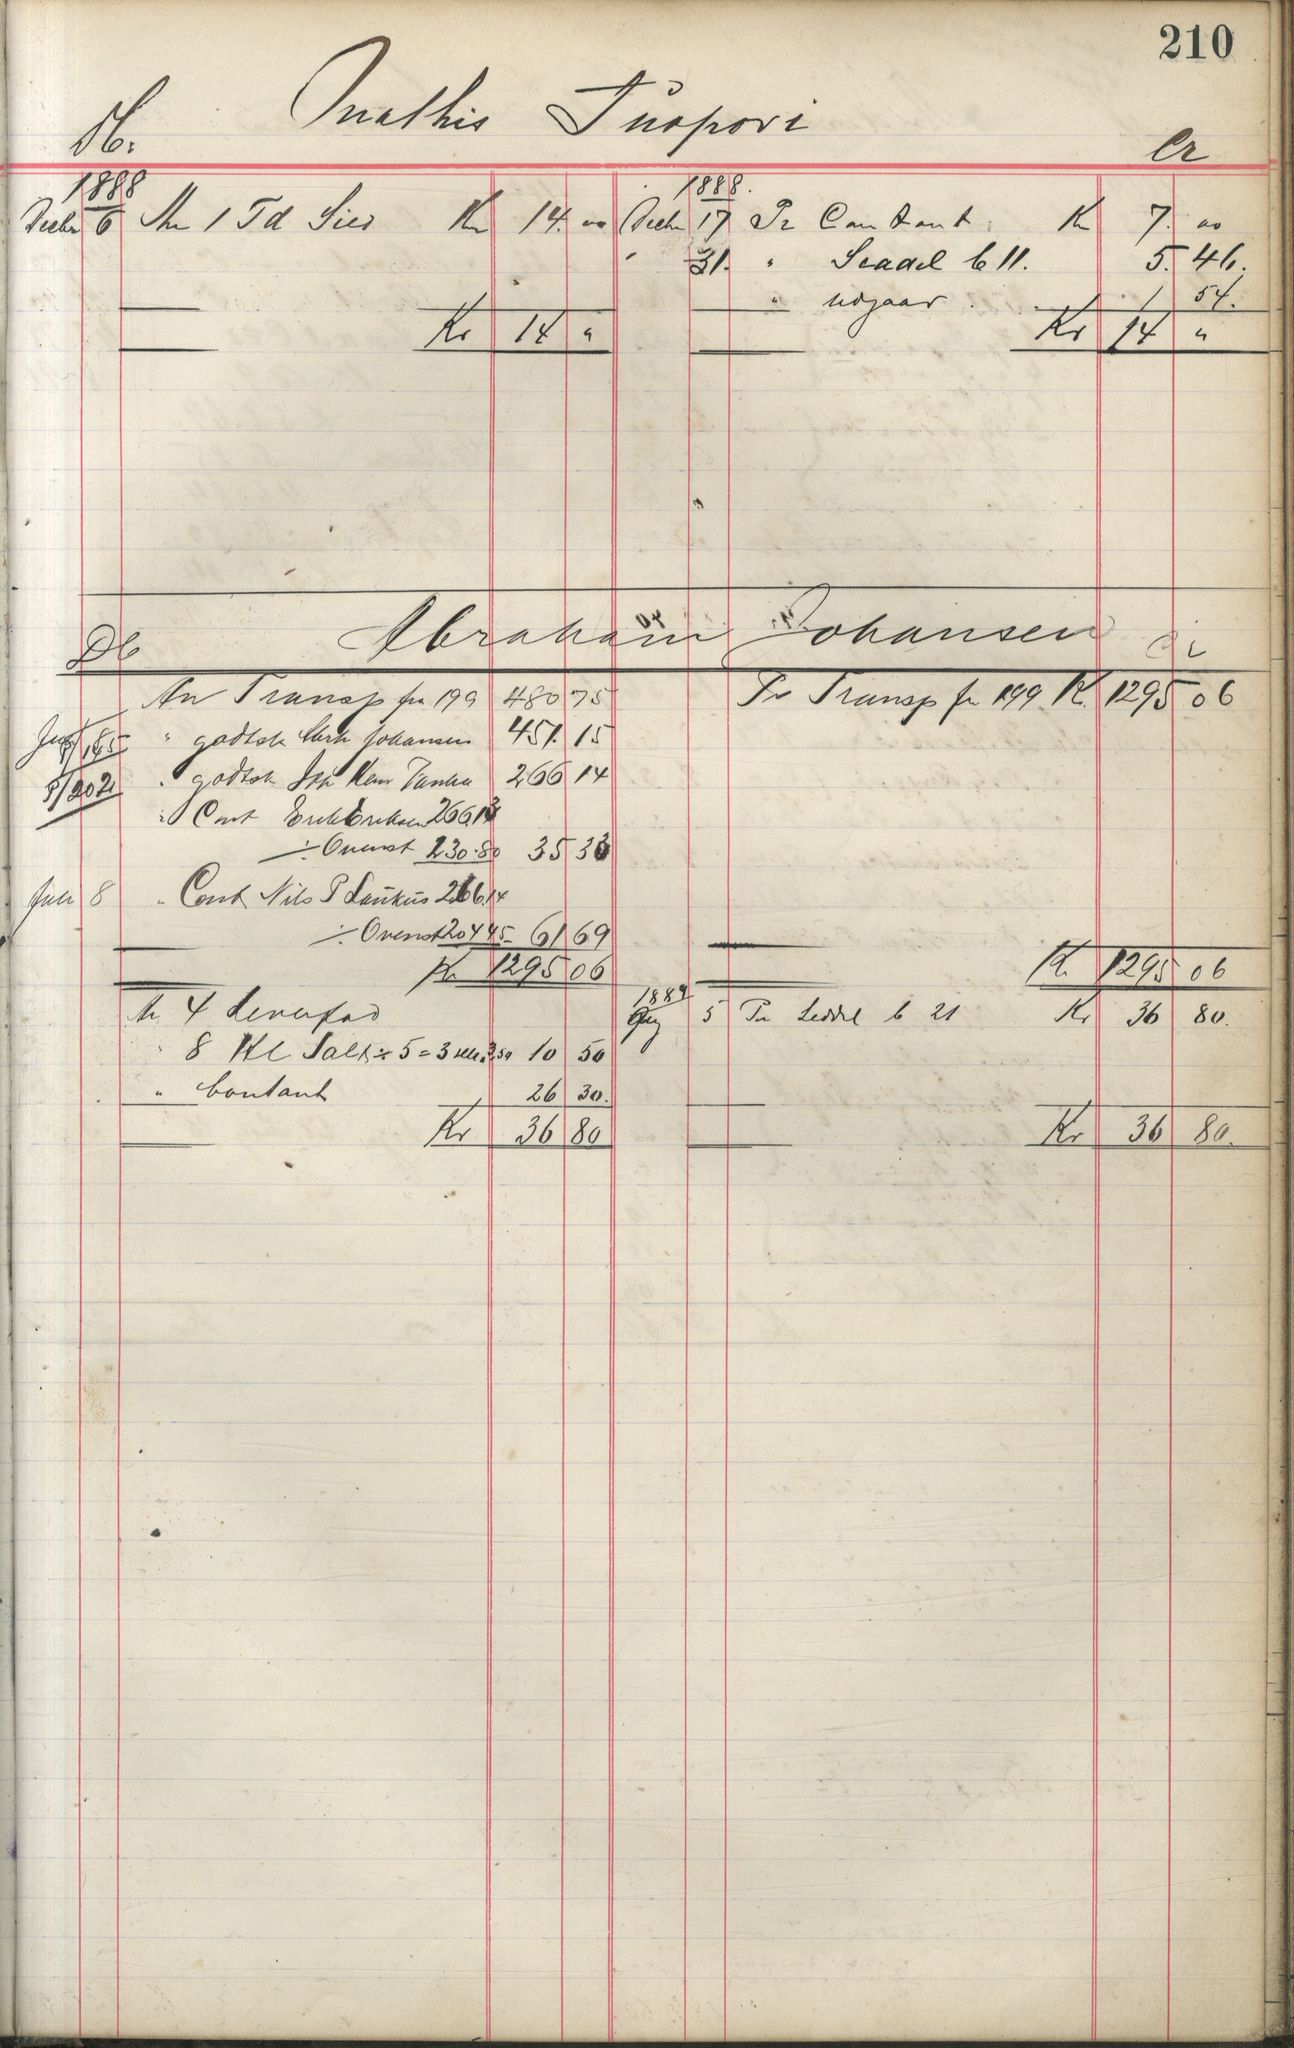 210
Mathis Tuopori
Db. Cr
1888 1888.
Decbr 6 An 1 Td Sild Kr 14. 00 Decbr 17 Pr Contant Kr 7. 00
" 31. " Seddel b 11. 5. 46.
" udgaar 1 54.
Kr 14 " Kr 14 "
Abraham Johansen
Db Cr
An Transp fr 199 480 75 Pr Transp fr 199 K. 1295 06
" godtsk Johansen 451. 15
" godtsk 266 14
" Cont Erik Eriksen 266.13
÷ Ovenst 230.80 35 33
Juli 8 " Cont Nils P Laukus 266.14
÷ Ovenst 204 45 61 69
Kr 1295 06 K. 1295 06
1889
An 4 Leverfad Aug 5 Pr Seddel b 21 Kr 36 80.
" 8 Hl Salt ÷ 5 = 3 3.50 10 50
" Contant 26 30.
Kr 36 80 Kr 36 80.